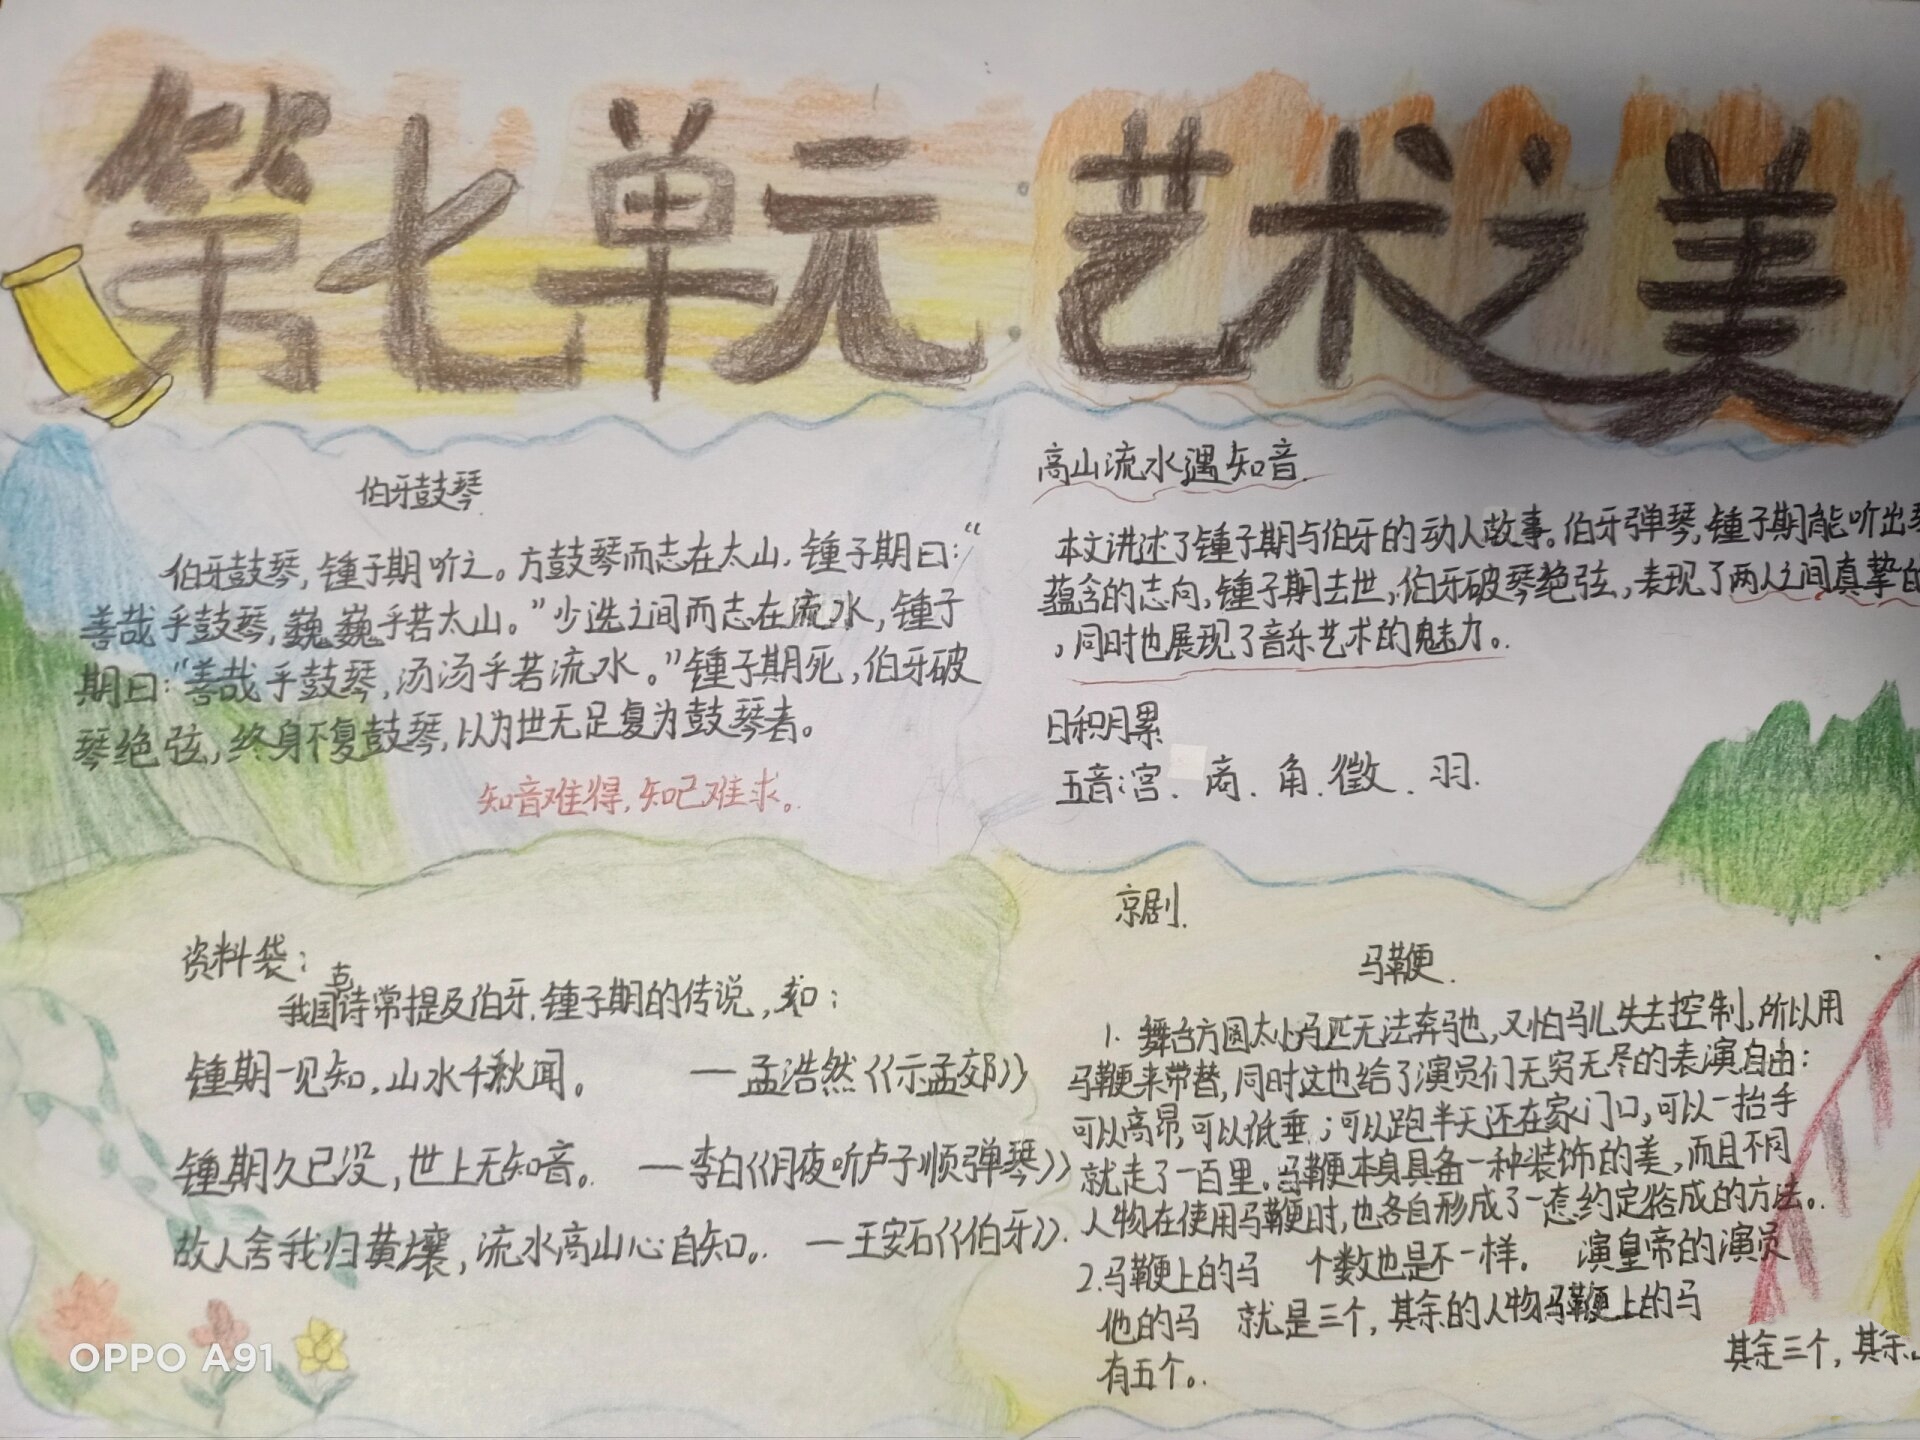 第七单元 艺术之美
伯牙鼓琴
伯牙鼓琴,锺子期听之。方鼓琴而志在太山,锺子期曰:“
善哉乎鼓琴,巍巍乎若太山。”少选之间而志在流水,锺子
期曰:“善哉乎鼓琴,汤汤乎若流水。”锺子期死,伯牙破
琴绝弦,终身不复鼓琴,以为世无足复为鼓琴者。
知音难得,知己难求。
高山流水遇知音.
本文讲述了锺子期与伯牙的动人故事。伯牙弹琴,锺子期能听出琴
蕴含的志向,锺子期去世,伯牙破琴绝弦,表现了两人之间真挚的
,同时也展现了音乐艺术的魅力。
日积月累
五音:宫、商、角、徵、羽.
资料袋:
我国古诗常提及伯牙、锺子期的传说,如:
锺期一见知,山水千秋闻。 —孟浩然《示孟郊》
锺期久已没,世上无知音。 —李白《月夜听卢子顺弹琴》
故人舍我归黄壤,流水高山心自知。 —王安石《伯牙》.
京剧.
马鞭.
1. 舞台方圆太小马匹无法奔驰,又怕马儿失去控制,所以用
马鞭来带替,同时这也给了演员们无穷无尽的表演自由:
可以高昂,可以低垂;可以跑半天还在家门口,可以一抬手
就走了一百里。马鞭本身具备一种装饰的美,而且不同
人物在使用马鞭时,也各自形成了一套约定俗成的方法。
2.马鞭上的马 个数也是不一样。 演皇帝的演员
他的马 就是三个,其余的人物马鞭上的马
有五个。
其余三个,其余
OPPO A91